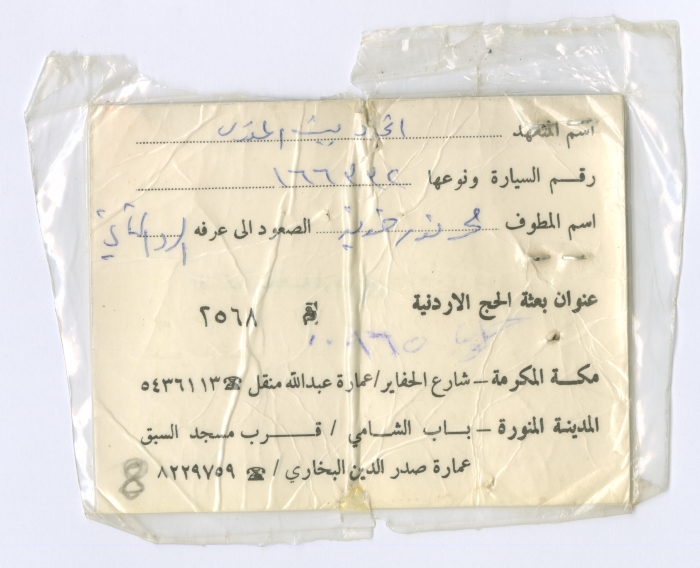 اسم المتعهد اتحاد بيت المقدس
رقم السيارة ونوعها ١٦٦٣٣٢
اسم المطوف محمد نور الصعود الى عرفه
عنوان بعثة الحج الاردنية ٢٥٦٨
٠٠٨٦٥
مكة المكرمة – شارع الحفاير/عمارة عبدالله منقل ☎ ٥٤٣٦١١٣
المدينة المنورة – باب الشامي / قرب مسجد السبق
عمارة صدر الدين البخاري / ☎ ٨٢٢٩٧٥٩
8